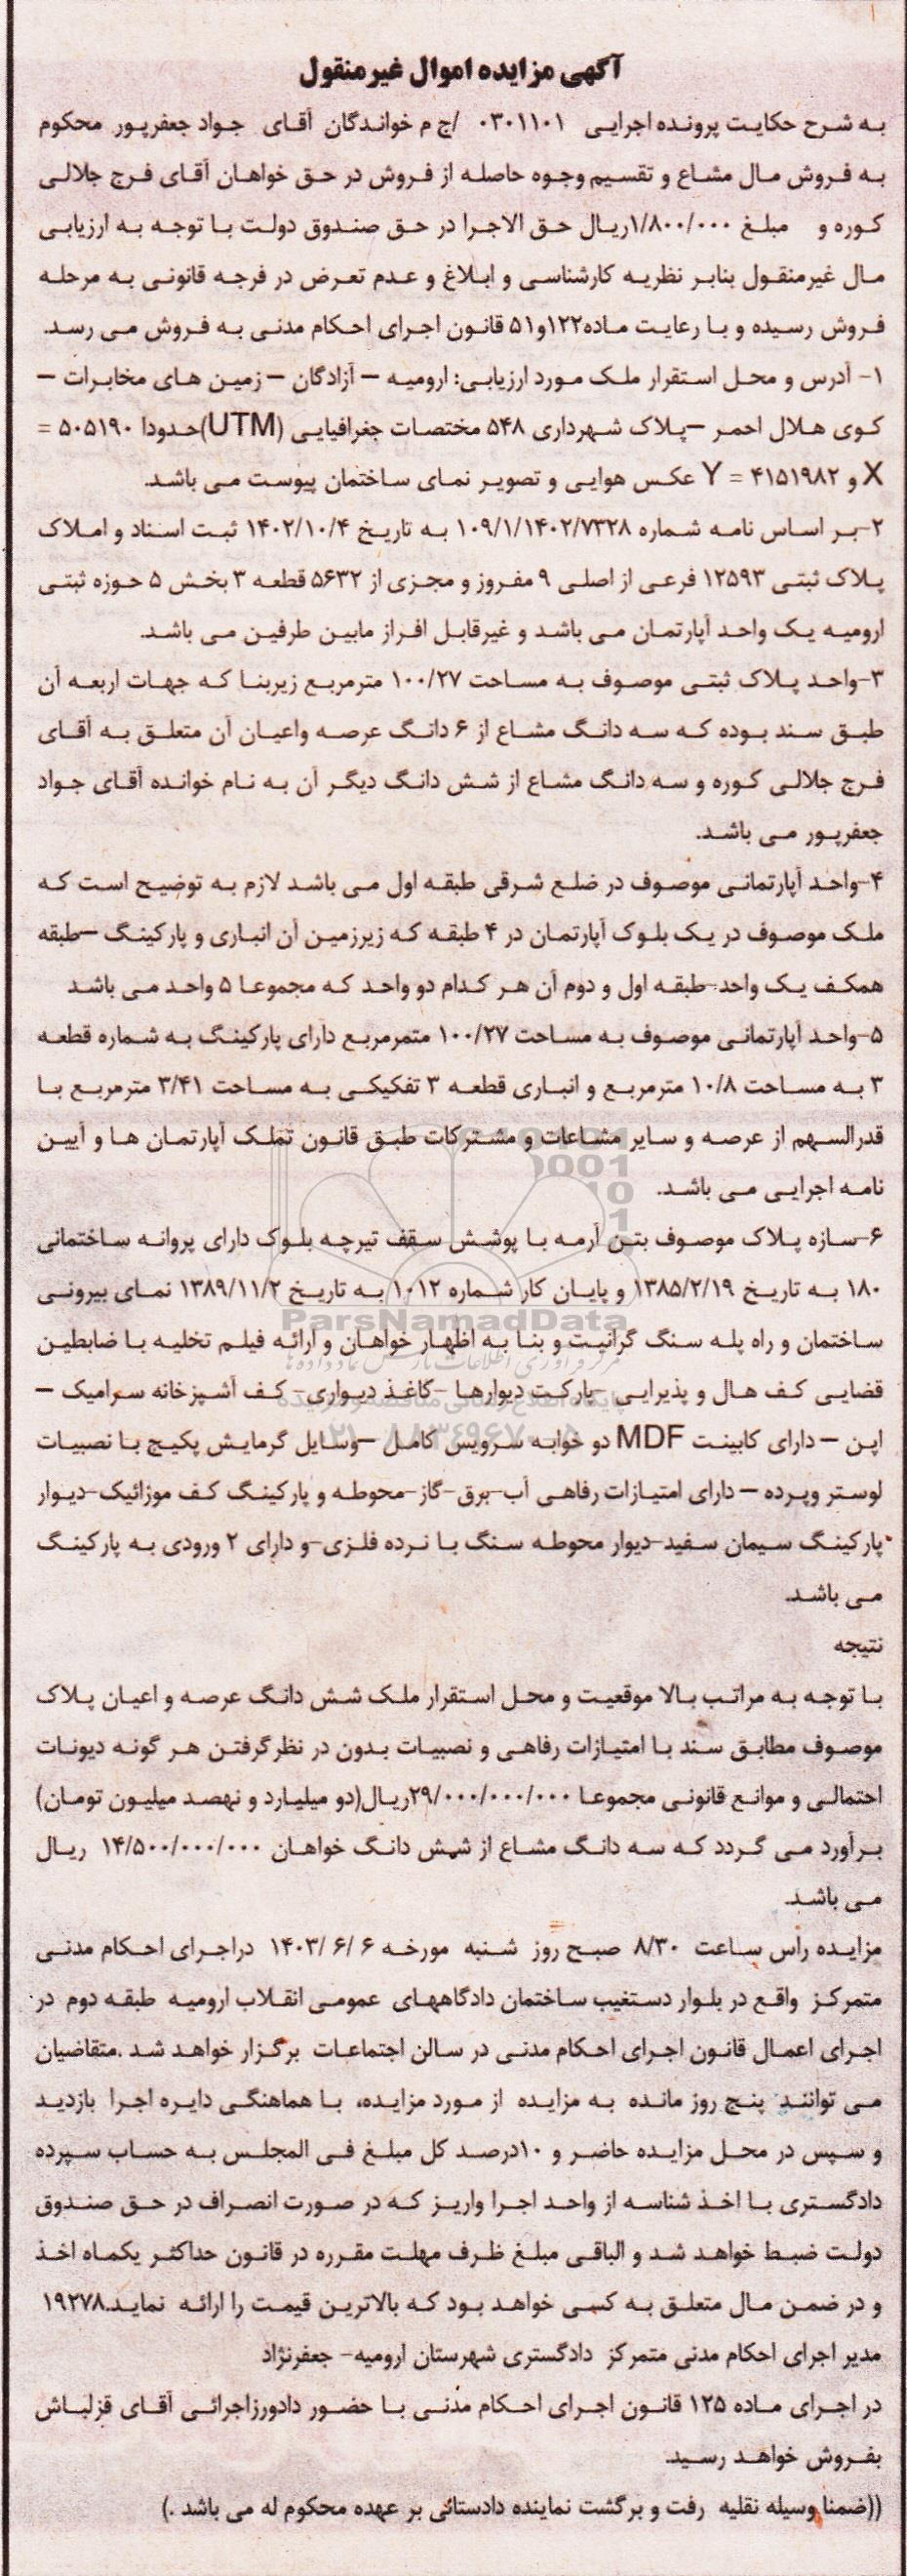 آگهی مزایده اموال غیرمنقول
به شرح حکایت پرونده اجرایی ۰۳۰۱۱۰۱ /ج م خواندگان آقای جواد جعفرپور محکوم
به فروش مال مشاع و تقسیم وجوه حاصله از فروش در حق خواهان آقای فرج جلالی
کوره و مبلغ ۱/۸۰۰/۰۰۰ریال حق الاجرا در حق صندوق دولت با توجه به ارزیابی
مال غیرمنقول بنابر نظریه کارشناسی و ابلاغ و عدم تعرض در فرجه قانونی به مرحله
فروش رسیده و با رعایت ماده۱۲۲و۵۱ قانون اجرای احکام مدنی به فروش می رسد.
۱- آدرس و محل استقرار ملک مورد ارزیابی: ارومیه – آزادگان – زمین های مخابرات –
کوی هلال احمر –پلاک شهرداری ۵۴۸ مختصات جغرافیایی (UTM)حدودا ۵۰۵۱۹۰ =
X و ۴۱۵۱۹۸۲ = Y عکس هوایی و تصویر نمای ساختمان پیوست می باشد.
۲-بر اساس نامه شماره ۱۰۹/۱/۱۴۰۲/۷۳۲۸ به تاریخ ۱۴۰۲/۱۰/۴ ثبت اسناد و املاک
پلاک ثبتی ۱۲۵۹۳ فرعی از اصلی ۹ مفروز و مجزی از ۵۶۳۲ قطعه ۳ بخش ۵ حوزه ثبتی
ارومیه یک واحد آپارتمان می باشد و غیرقابل افراز مابین طرفین می باشد.
۳-واحد پلاک ثبتی موصوف به مساحت ۱۰۰/۲۷ مترمربع زیربنا که جهات اربعه آن
طبق سند بوده که سه دانگ مشاع از ۶ دانگ عرصه واعیان آن متعلق به آقای
فرج جلالی کوره و سه دانگ مشاع از شش دانگ دیگر آن به نام خوانده آقای جواد
جعفرپور می باشد.
۴-واحد آپارتمانی موصوف در ضلع شرقی طبقه اول می باشد لازم به توضیح است که
ملک موصوف در یک بلوک آپارتمان در ۴ طبقه که زیرزمین آن انباری و پارکینگ –طبقه
همکف یک واحد-طبقه اول و دوم آن هر کدام دو واحد که مجموعا ۵ واحد می باشد
۵-واحد آپارتمانی موصوف به مساحت ۱۰۰/۲۷ متمرمربع دارای پارکینگ به شماره قطعه
۳ به مساحت ۱۰/۸ مترمربع و انباری قطعه ۳ تفکیکی به مساحت ۳/۴۱ مترمربع با
قدرالسهم از عرصه و سایر مشاعات و مشترکات طبق قانون تملک آپارتمان ها و آیین
نامه اجرایی می باشد.
۶-سازه پلاک موصوف بتن آرمه با پوشش سقف تیرچه بلوک دارای پروانه ساختمانی
۱۸۰ به تاریخ ۱۳۸۵/۲/۱۹ و پایان کار شماره ۱۰۱۲ به تاریخ ۱۳۸۹/۱۱/۲ نمای بیرونی
ParsNamadData
ساختمان و راه پله سنگ گرانیت و بنا به اظهار خواهان و ارائه فیلم تخلیه با ضابطین
قضایی کف هال و پذیرایی -پارکت دیوارها -کاغذ دیواری- کف آشپزخانه سرامیک –
اپن – دارای کابینت MDF دو خوابه سرویس کامل –وسایل گرمایش پکیج با نصبیات
لوستر وپرده – دارای امتیازات رفاهی آب-برق-گاز-محوطه و پارکینگ کف موزائیک-دیوار
پارکینگ سیمان سفید-دیوار محوطه سنگ با نرده فلزی-و دارای ۲ ورودی به پارکینگ
می باشد.
نتیجه
با توجه به مراتب بالا موقعیت و محل استقرار ملک شش دانگ عرصه و اعیان پلاک
موصوف مطابق سند با امتیازات رفاهی و نصبیات بدون در نظرگرفتن هر گونه دیونات
احتمالی و موانع قانونی مجموعا ۲۹/۰۰۰/۰۰۰/۰۰۰ریال(دو میلیارد و نهصد میلیون تومان)
برآورد می گردد که سه دانگ مشاع از شش دانگ خواهان ۱۴/۵۰۰/۰۰۰/۰۰۰ ریال
می باشد.
مزایده راس ساعت ۸/۳۰ صبح روز شنبه مورخه ۶ /۶ /۱۴۰۳ دراجرای احکام مدنی
متمرکز واقع در بلوار دستغیب ساختمان دادگاههای عمومی انقلاب ارومیه طبقه دوم در
اجرای اعمال قانون اجرای احکام مدنی در سالن اجتماعات برگزار خواهد شد .متقاضیان
می توانند پنج روز مانده به مزایده از مورد مزایده، با هماهنگی دایره اجرا بازدید
و سپس در محل مزایده حاضر و ۱۰درصد کل مبلغ فی المجلس به حساب سپرده
دادگستری با اخذ شناسه از واحد اجرا واریز که در صورت انصراف در حق صندوق
دولت ضبط خواهد شد و الباقی مبلغ ظرف مهلت مقرره در قانون حداکثر یکماه اخذ
و در ضمن مال متعلق به کسی خواهد بود که بالاترین قیمت را ارائه نماید.۱۹۲۷۸
مدیر اجرای احکام مدنی متمرکز دادگستری شهرستان ارومیه- جعفرنژاد
در اجرای ماده ۱۲۵ قانون اجرای احکام مدنی با حضور دادورزاجرائی آقای قزلباش
بفروش خواهد رسید.
((ضمنا وسیله نقلیه رفت و برگشت نماینده دادستانی بر عهده محکوم له می باشد .)